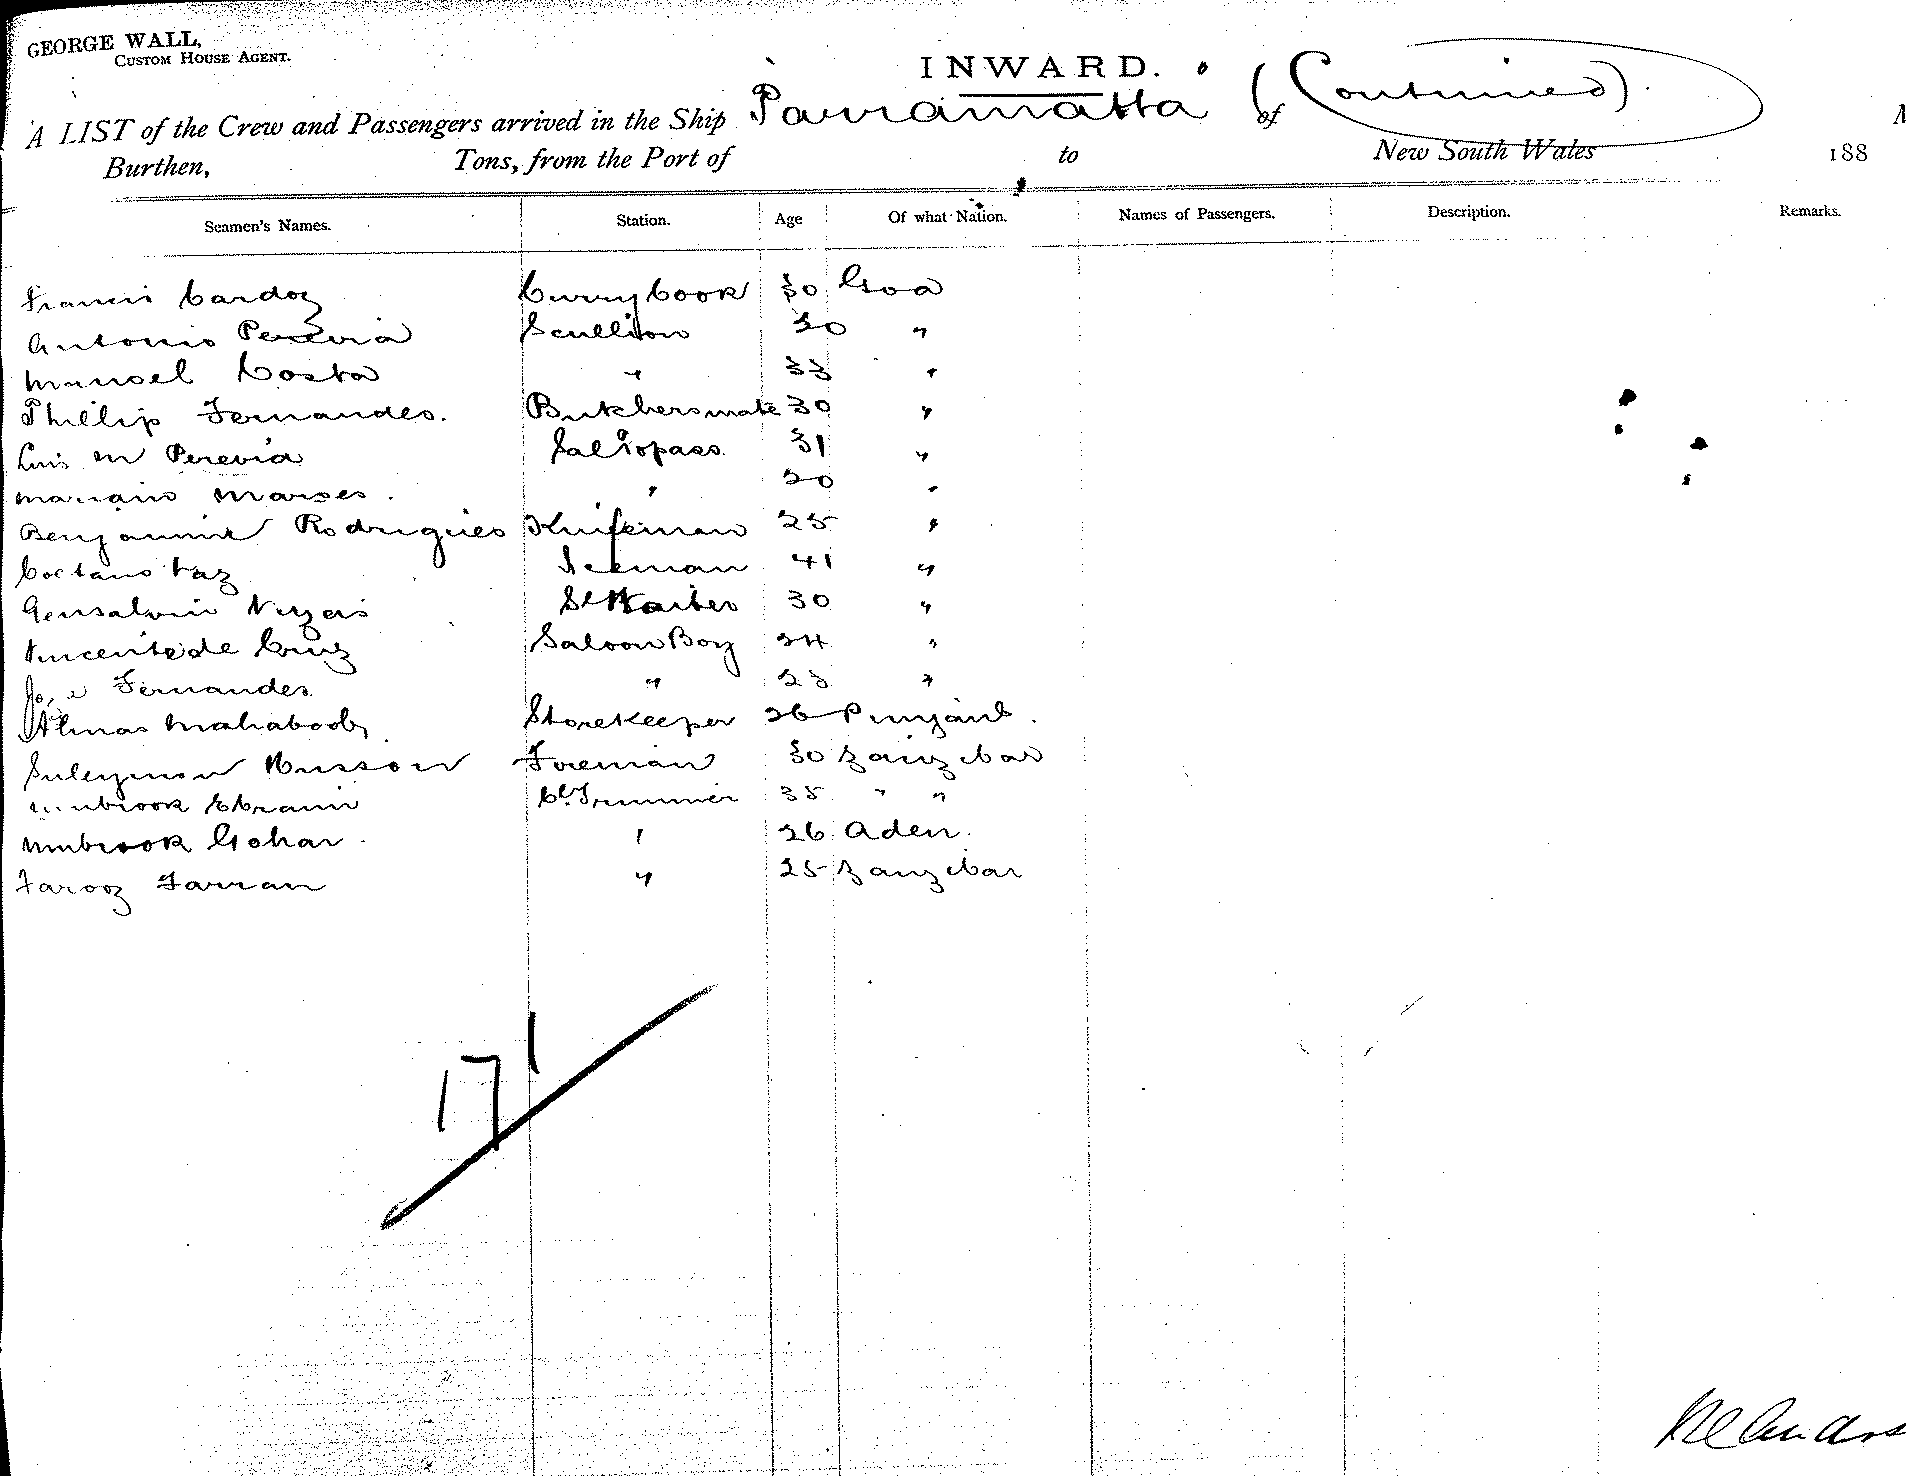 GEORGE WALL,
CUSTOM HOUSE AGENT.
INWARD.
A LIST of the Crew and Passengers arrived in the Ship Parramatta of (Continued)
Burthen, Tons, from the Port of to New South Wales 188
Seamen's Names. Station. Age Of what Nation. Names of Passengers. Description. Remarks.
Francis Cardoz Curry Cook 30 Goa
Antonio Pereira Scullion 20 "
Manoel Costa " 33 "
Phillip Fernandes. Butchersmate 30 "
Luis M Pereira Sal Topass 31 "
Mariano " 20 "
Rodrigues Knifeman 25 "
Caetano Vaz 41 "
30 "
Vincente de Cruz Saloon Boy 24 "
Jose Fernandes " 23 "
Almas Mahaboob Storekeeper 26 Punjaub.
Suleyman Husson Foreman 30 Zanzibar
Mubrook Ebraim Cl Trimmer 35 " "
Mubrook Gohar " 26 Aden.
Farooz Farran " 25 Zanzibar
171